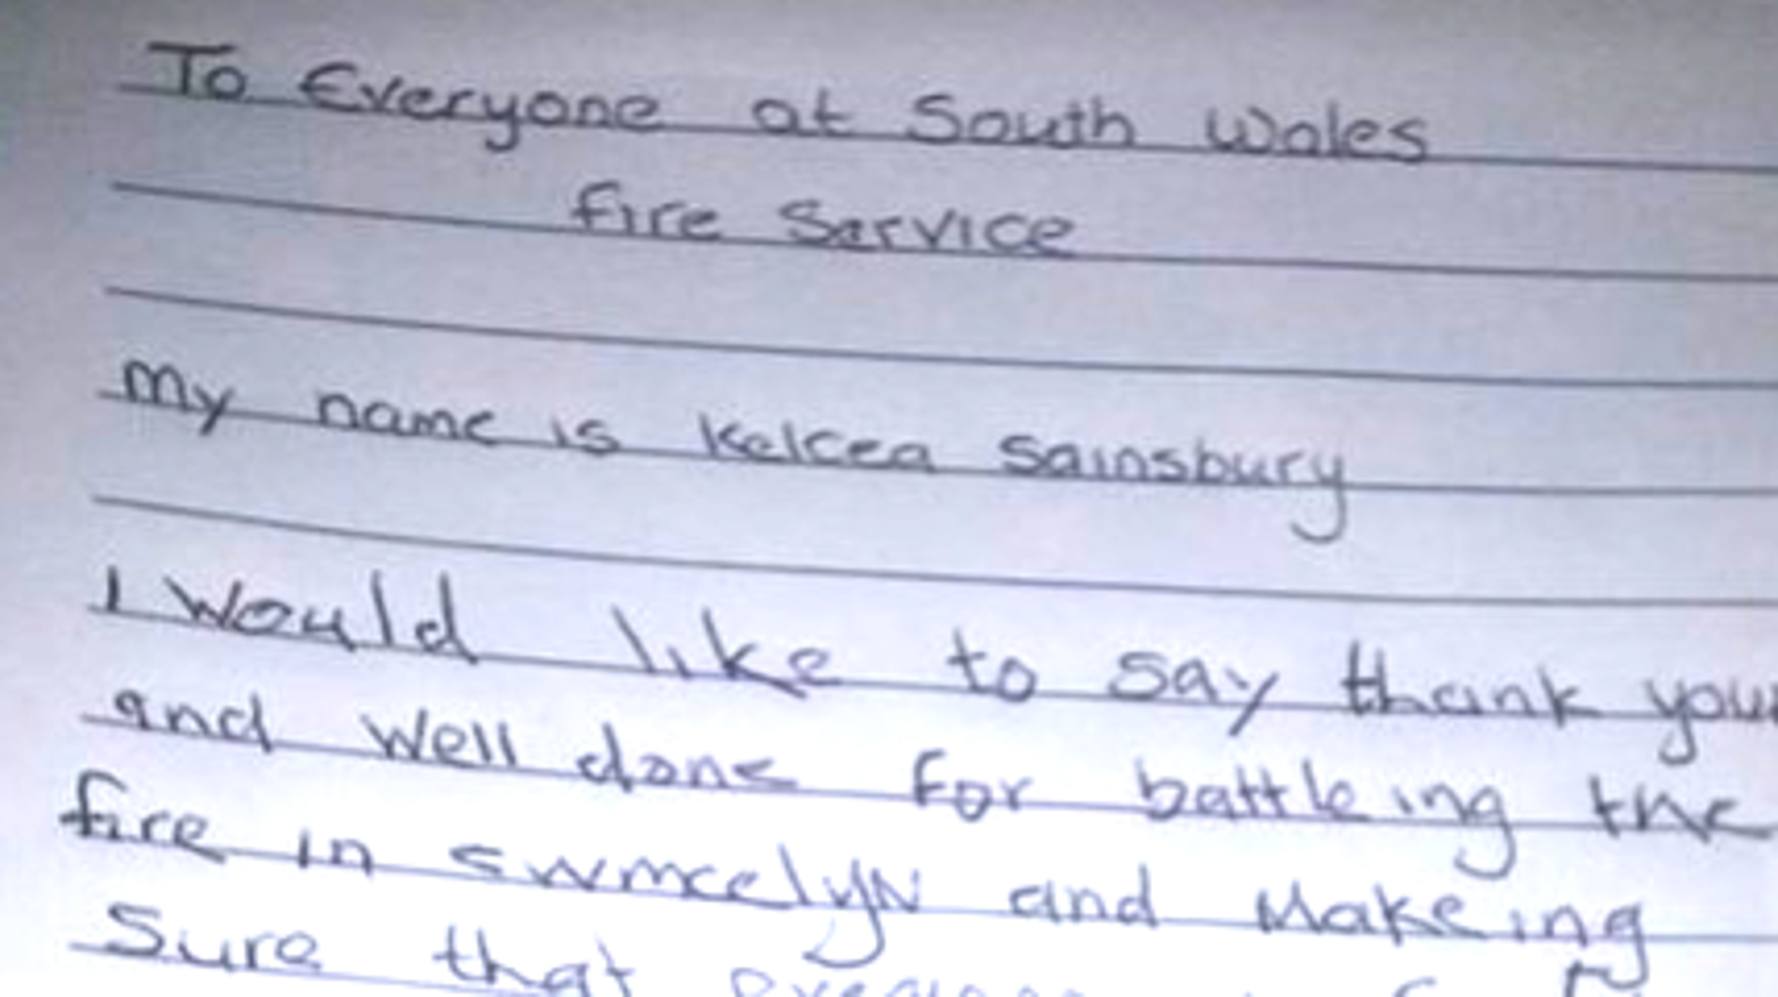 To Everyone at South Wales
fire Service
My name is Kelcea Sainsbury
I Would like to say thank you
and well done for battleing the
fire in swmcelyn and Makeing
Sure that